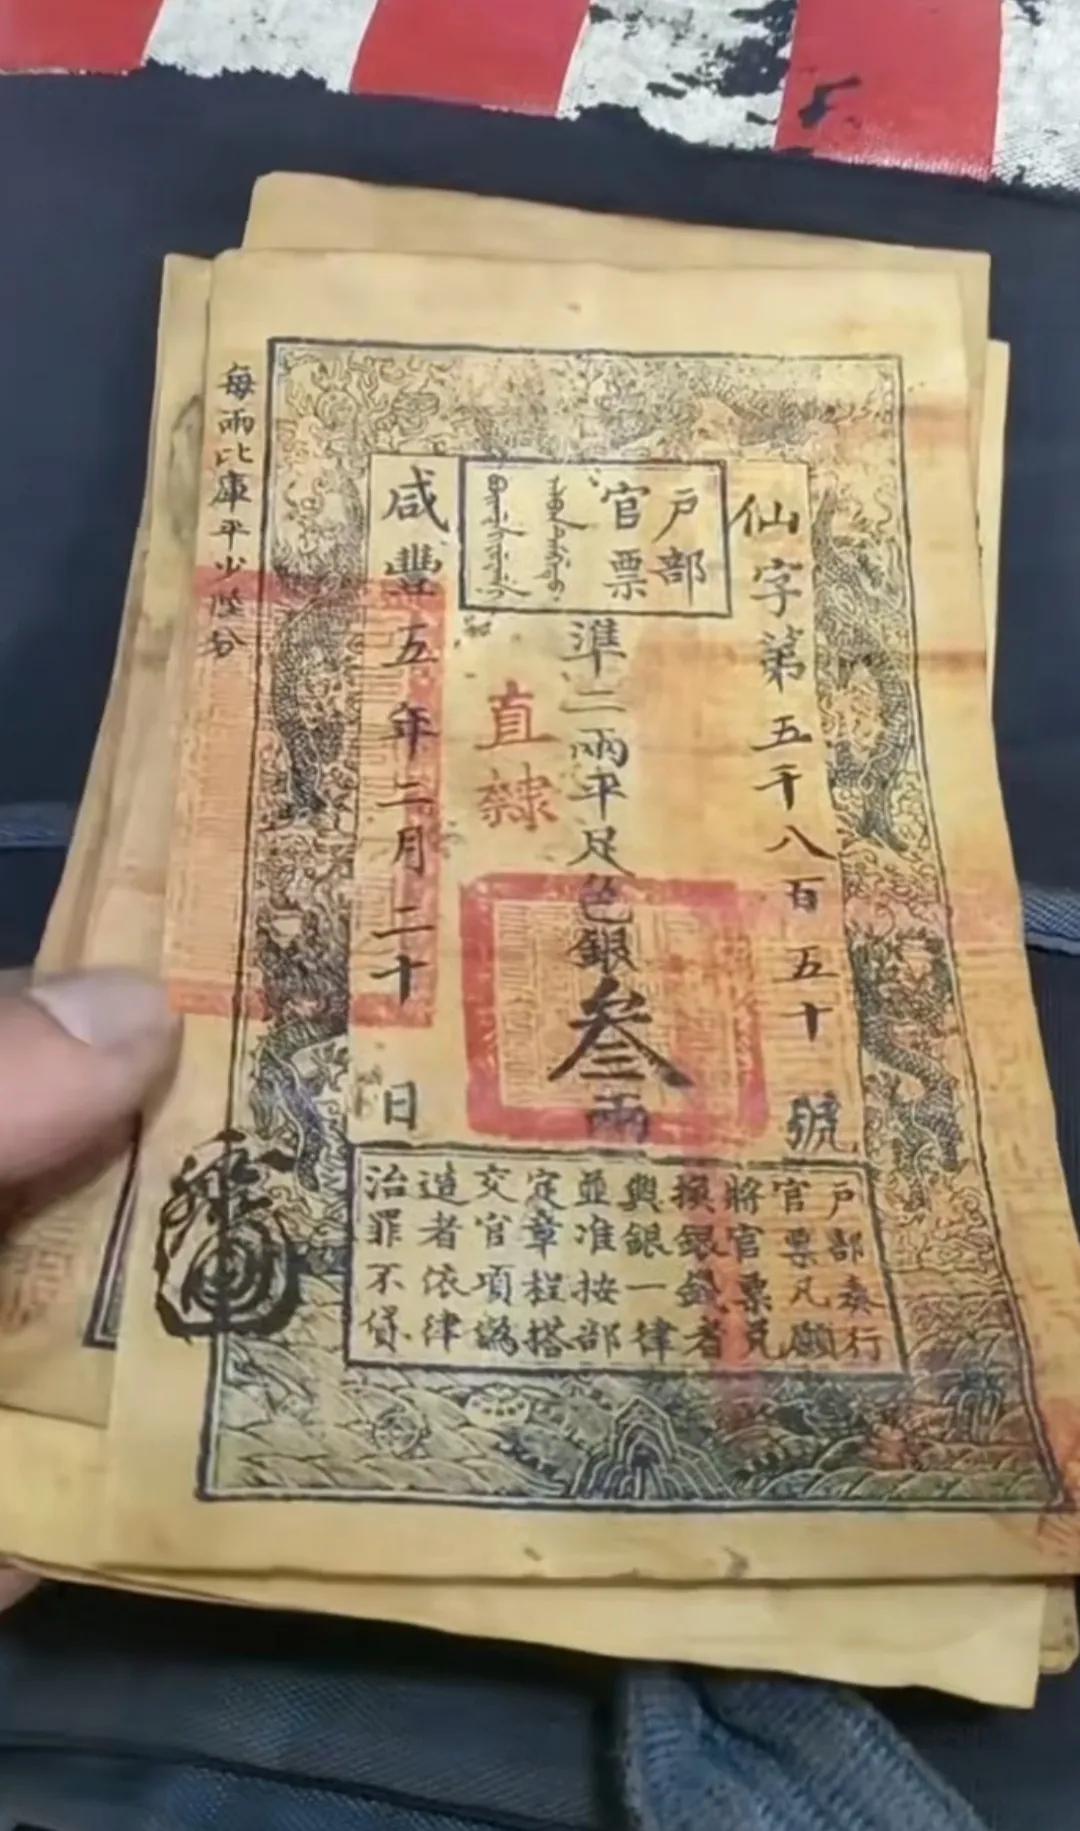 戶部
官票
仙字第五千八百五十號
準二兩平足色銀叁兩
直隸
咸豐五年二月二十日
每兩比庫平少陸分
戶部奏行
官票凡願
將官票兌
換銀錢者
與銀一律
並准按部
定章程搭
交官項偽
造者依律
治罪不貸